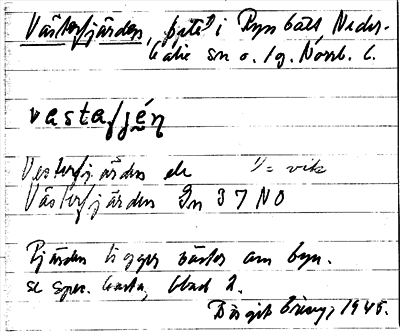 Västerfjärden, i Ryn bält Neder-
kalix sn o. lg. Norrb. l.
vastafjén
Vesterfjärden ek 1) = vik
Västerfjärden Gn 37 NO
Fjärden ligger väster om byn.
se spec. karta, blad 2.
Birgit 1945.